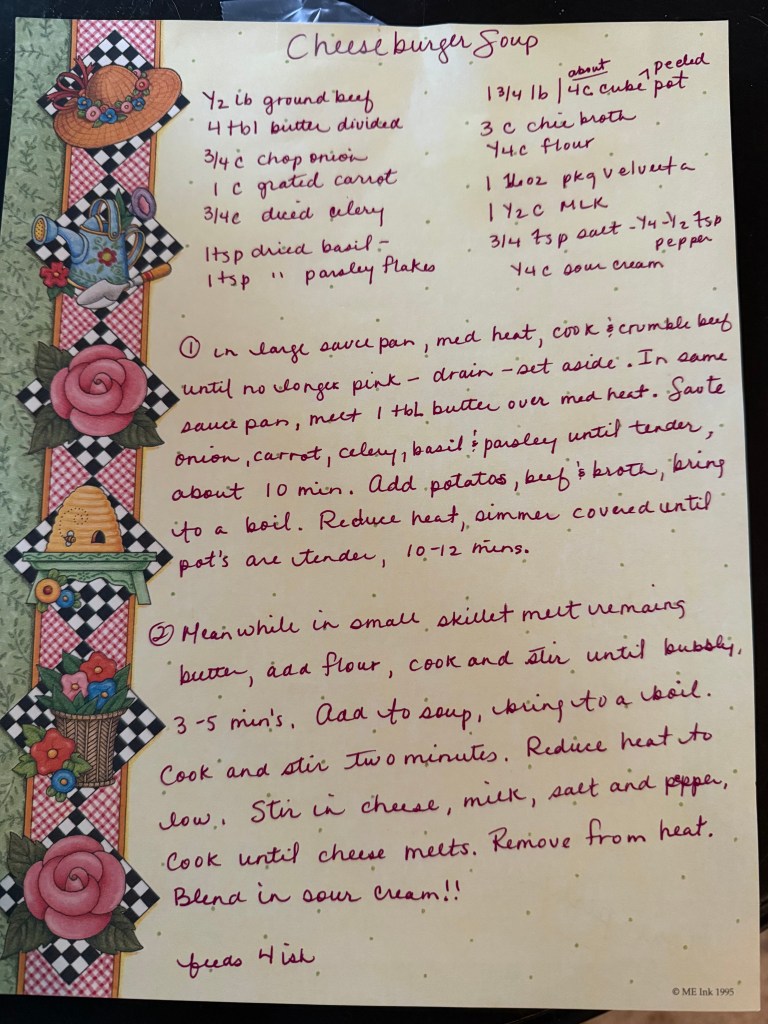 Cheeseburger Soup
1/2 lb ground beef
4 tbl butter divided
3/4 c chop onion
1 c grated carrot
3/4 c diced celery
1 tsp dried basil -
1 tsp " parsley flakes
1 3/4 lb | about 4c cube peeled pot
3 c chic broth
1/4 c flour
1 16oz pkg velveeta
1 1/2 c MLK
3/4 Tsp salt - 1/4 - 1/2 Tsp
pepper
1/4 c sour cream
① in large sauce pan, med heat, cook & crumble beef
until no longer pink - drain - set aside. In same
sauce pan, melt 1 tbL butter over med heat. Saute
onion, carrot, celery, basil & parsley until tender,
about 10 min. Add potatos, beef & broth, bring
to a boil. Reduce heat, simmer covered until
pot's are tender, 10-12 mins.
② Meanwhile in small skillet melt remaing
butter, add flour, cook and stir until bubbly,
3-5 min's. Add to soup, bring to a boil.
Cook and stir two minutes. Reduce heat to
low. Stir in cheese, milk, salt and pepper,
Cook until cheese melts. Remove from heat.
Blend in sour cream!!
feeds 4 ish
© ME Ink 1995